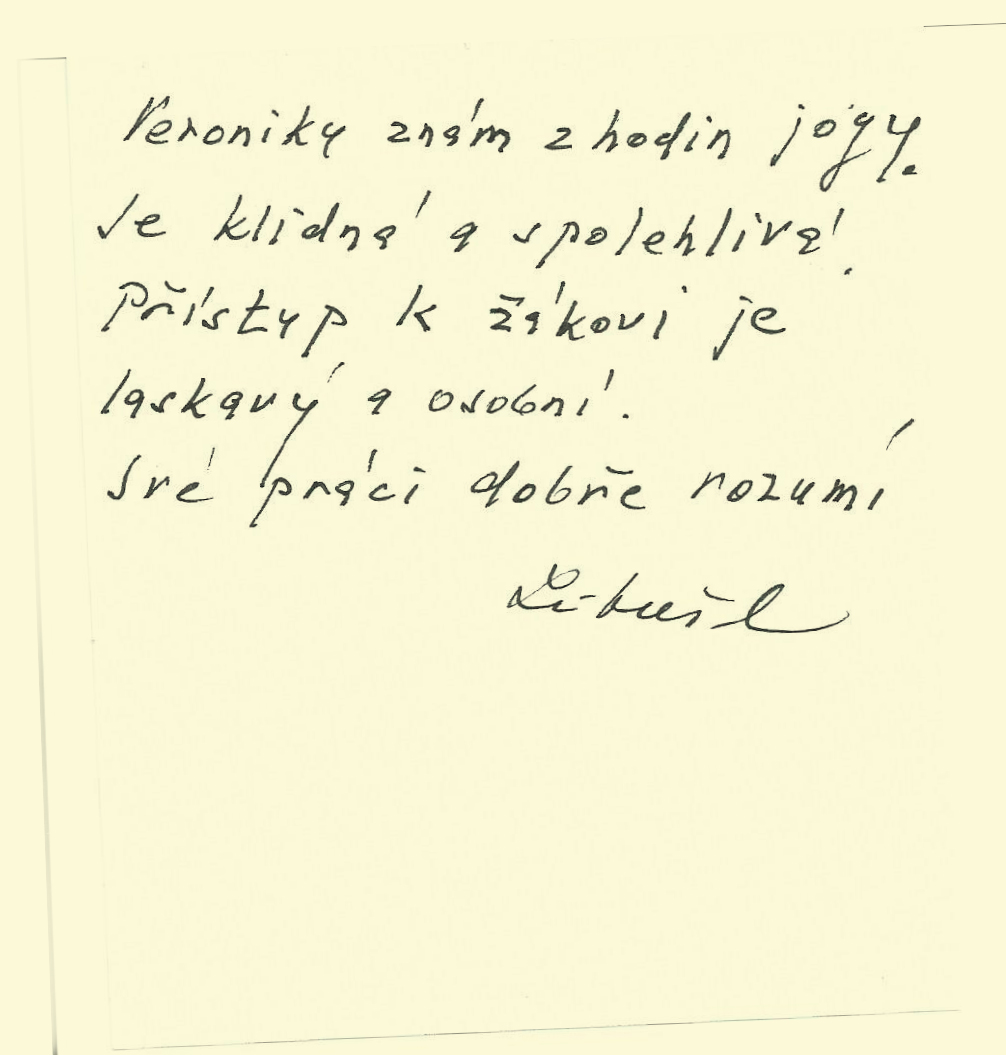 Veroniky znám z hodin jógy.
Je klidná a spolehlivá.
Přístup k žákovi je
laskavý a osobní.
Své práci dobře rozumí
Libuše